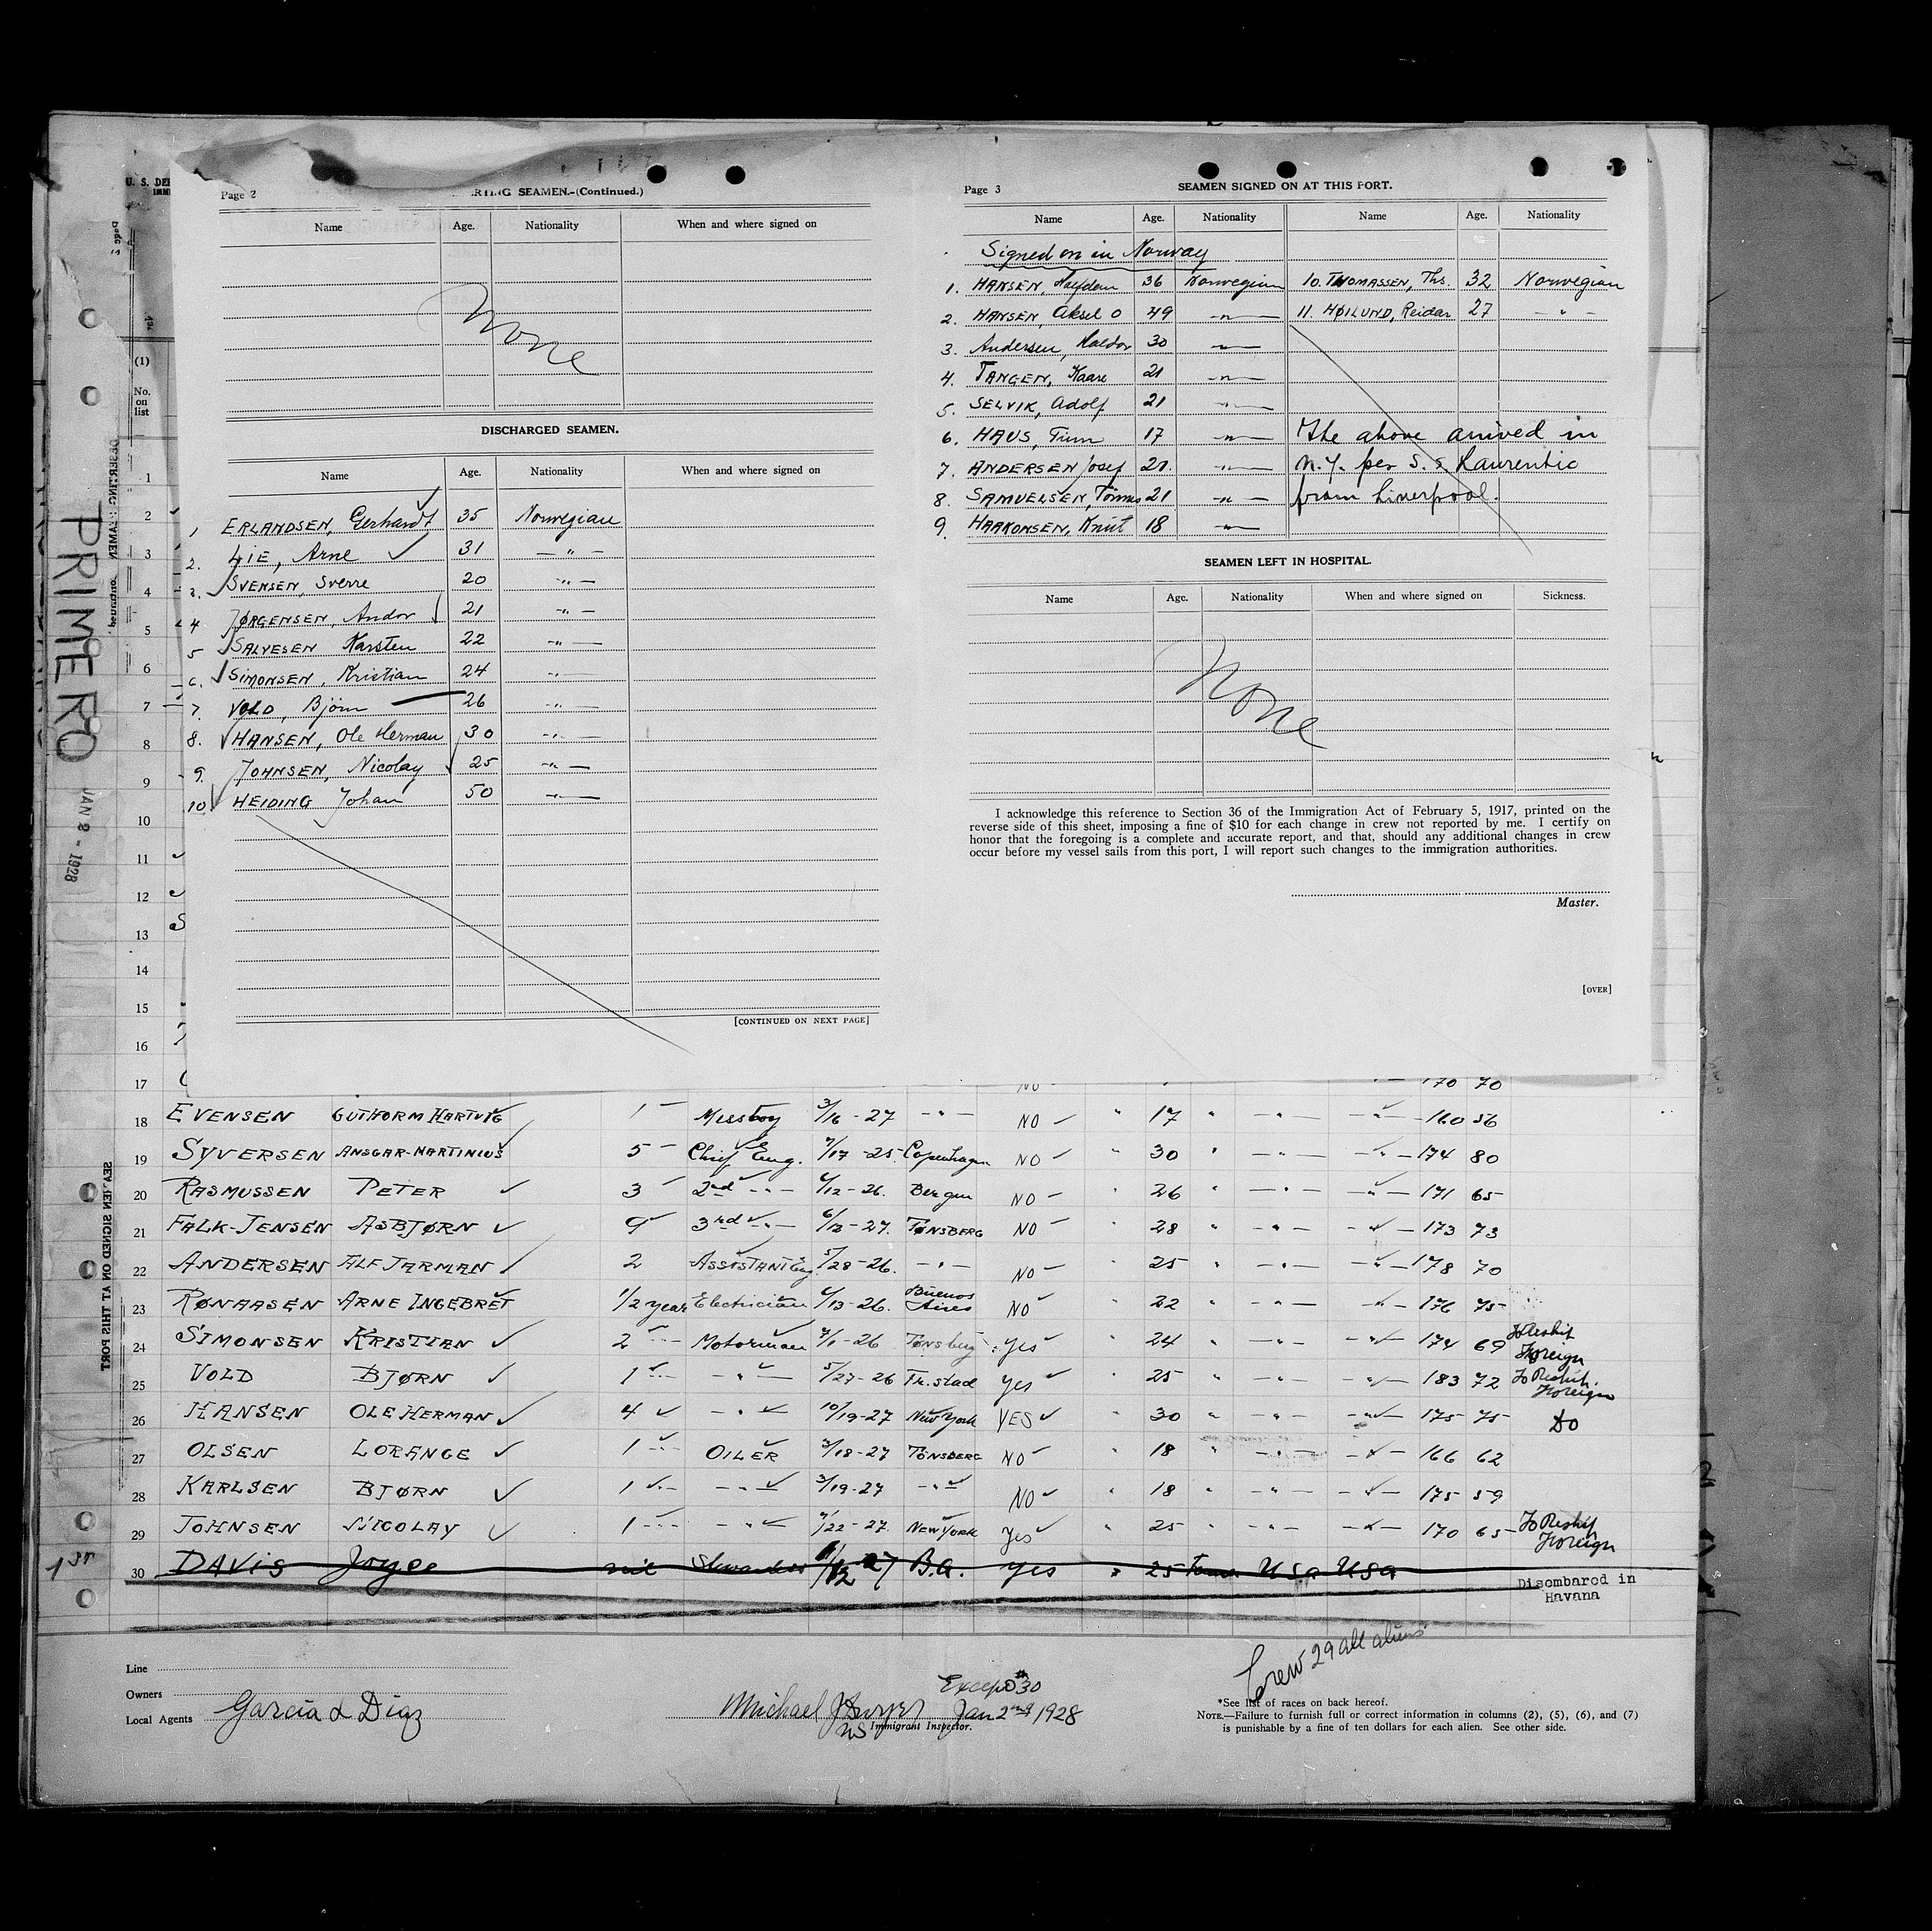 U. S. DE
IMM
Page 2
RTING SEAMEN.-(Continued.)
Name Age. Nationality When and where signed on
None
DISCHARGED SEAMEN.
Name Age. Nationality When and where signed on
1 ERLANDSEN, Gerhardt 35 Norwegian
2. LIE, Arne 31 — " —
3. SVENSEN, Sverre 20 — " —
4 JØRGENSEN, Andor 21 — " —
5 SALVESEN Karsten 22 — " —
6. SIMONSEN, Kristian 24 — " —
7. VOLD, Bjørn 26 — " —
8. HANSEN, Ole Herman 30 — " —
9. JOHNSEN, Nicolay 25 — " —
10. HEIDING Johan 50 — " —
[CONTINUED ON NEXT PAGE]
Page 3
SEAMEN SIGNED ON AT THIS PORT.
Name Age. Nationality Name Age. Nationality
Signed on in Norway
1. HANSEN, Halfdan 36 Norwegian 10. THOMASSEN, Ths. 32 Norwegian
2. HANSEN, Aksel O 49 — " — 11. HØILUND, Reidar 27 — " —
3. Andersen, Haldor 30 — " —
4. TANGEN, Kaare 21 — " —
5. SELVIK, Adolf 21 — " —
6. HAUS, Finn 17 — " — The above arrived in
7. ANDERSEN Josef 21. — " — N.Y. per S.S. Laurentic
8. SAMUELSEN, Tønnes 21 — " — from Liverpool.
9. HAAKONSEN, Knut 18 — " —
SEAMEN LEFT IN HOSPITAL.
Name Age. Nationality When and where signed on Sickness.
None
I acknowledge this reference to Section 36 of the Immigration Act of February 5, 1917, printed on the
reverse side of this sheet, imposing a fine of $10 for each change in crew not reported by me. I certify on
honor that the foregoing is a complete and accurate report, and that, should any additional changes in crew
occur before my vessel sails from this port, I will report such changes to the immigration authorities.
Master.
[OVER]
PRIMERO
JAN 2 - 1928
SEAMEN SIGNED ON AT THIS PORT
(1)
No.
on
list
1
2
3
4
5
6
7
8
9
10
11
12
13
14
15
16
17 NO 170 70
18 EVENSEN GUTHORM HARTVIG 1 — Messboy 3/16-27 — " — NO " 17 " — " — — " — 160 56
19 SYVERSEN ANSGAR-MARTINIUS 5 — Chief Eng. 7/17-25 Copenhagen NO " 30 " — " — — " — 174 80
20 RASMUSSEN PETER 3 2nd — " — 6/12-26. Bergen NO " 26 " — " — — " — 171 65
21 FALK-JENSEN ASBJØRN 9 3rd — " — 6/13-27. TØNSBERG NO " 28 " — " — — " — 173 73
22 ANDERSEN ALF JARMAN 2 ASSISTANT Eng. 5/28-26. — " — NO " 25 " — " — — " — 178 70
23 RØNAASEN ARNE INGEBRET 1/2 year Electrician 6/13-26. Buenos Aires NO 22 " — " — — " — 176 75
24 SIMONSEN KRISTIAN 2 — " — Motorman 7/1-26 Tønsberg Yes " 24 " — " — — " — 174 69 To Reship Foreign
25 VOLD BJØRN 1 — " — — " — 5/27-26 Fr.stad Yes " 25 " — " — — " — 183 72 To Reship. Foreign
26 HANSEN OLE HERMAN 4 — " — 10/19-27 New York YES " 30 " — " — — " — 175 75 DO
27 OLSEN LORANGE 1 — " — OILER 3/18-27 TØNSBERG NO " 18 " — " — — " — 166 62
28 KARLSEN BJØRN 1 — " — — " — 3/19-27 — " — NO " 18 " — " — — " — 175 59
29 JOHNSEN NICOLAY 1 — " — — " — 7/22-27. NEW YORK Yes " 25 " — " — — " — 170 65 To Reship Foreign
1st
30 DAVIS Joyce nil Stewardess 27 B.A. Yes " 25 USA USA
Disembared in
Havana
Crew 29 all aliens
Except #30
Line
Owners
Local Agents Garcia & Diaz
Michael Jan 2nd 1928
Immigrant Inspector.
*See list of races on back hereof.
NOTE.—Failure to furnish full or correct information in columns (2), (5), (6), and (7)
is punishable by a fine of ten dollars for each alien. See other side.